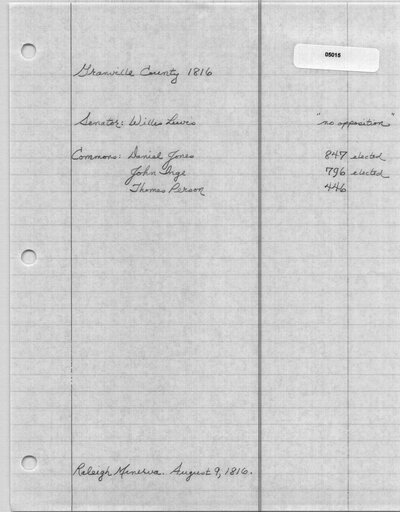 05015
Granville County 1816
Senator: Willis Lewis "no opposition"
Commons: Daniel Jones 847 elected
John Inge 796 elected
Thomas Person 446
Raleigh Minerva. August 9, 1816.